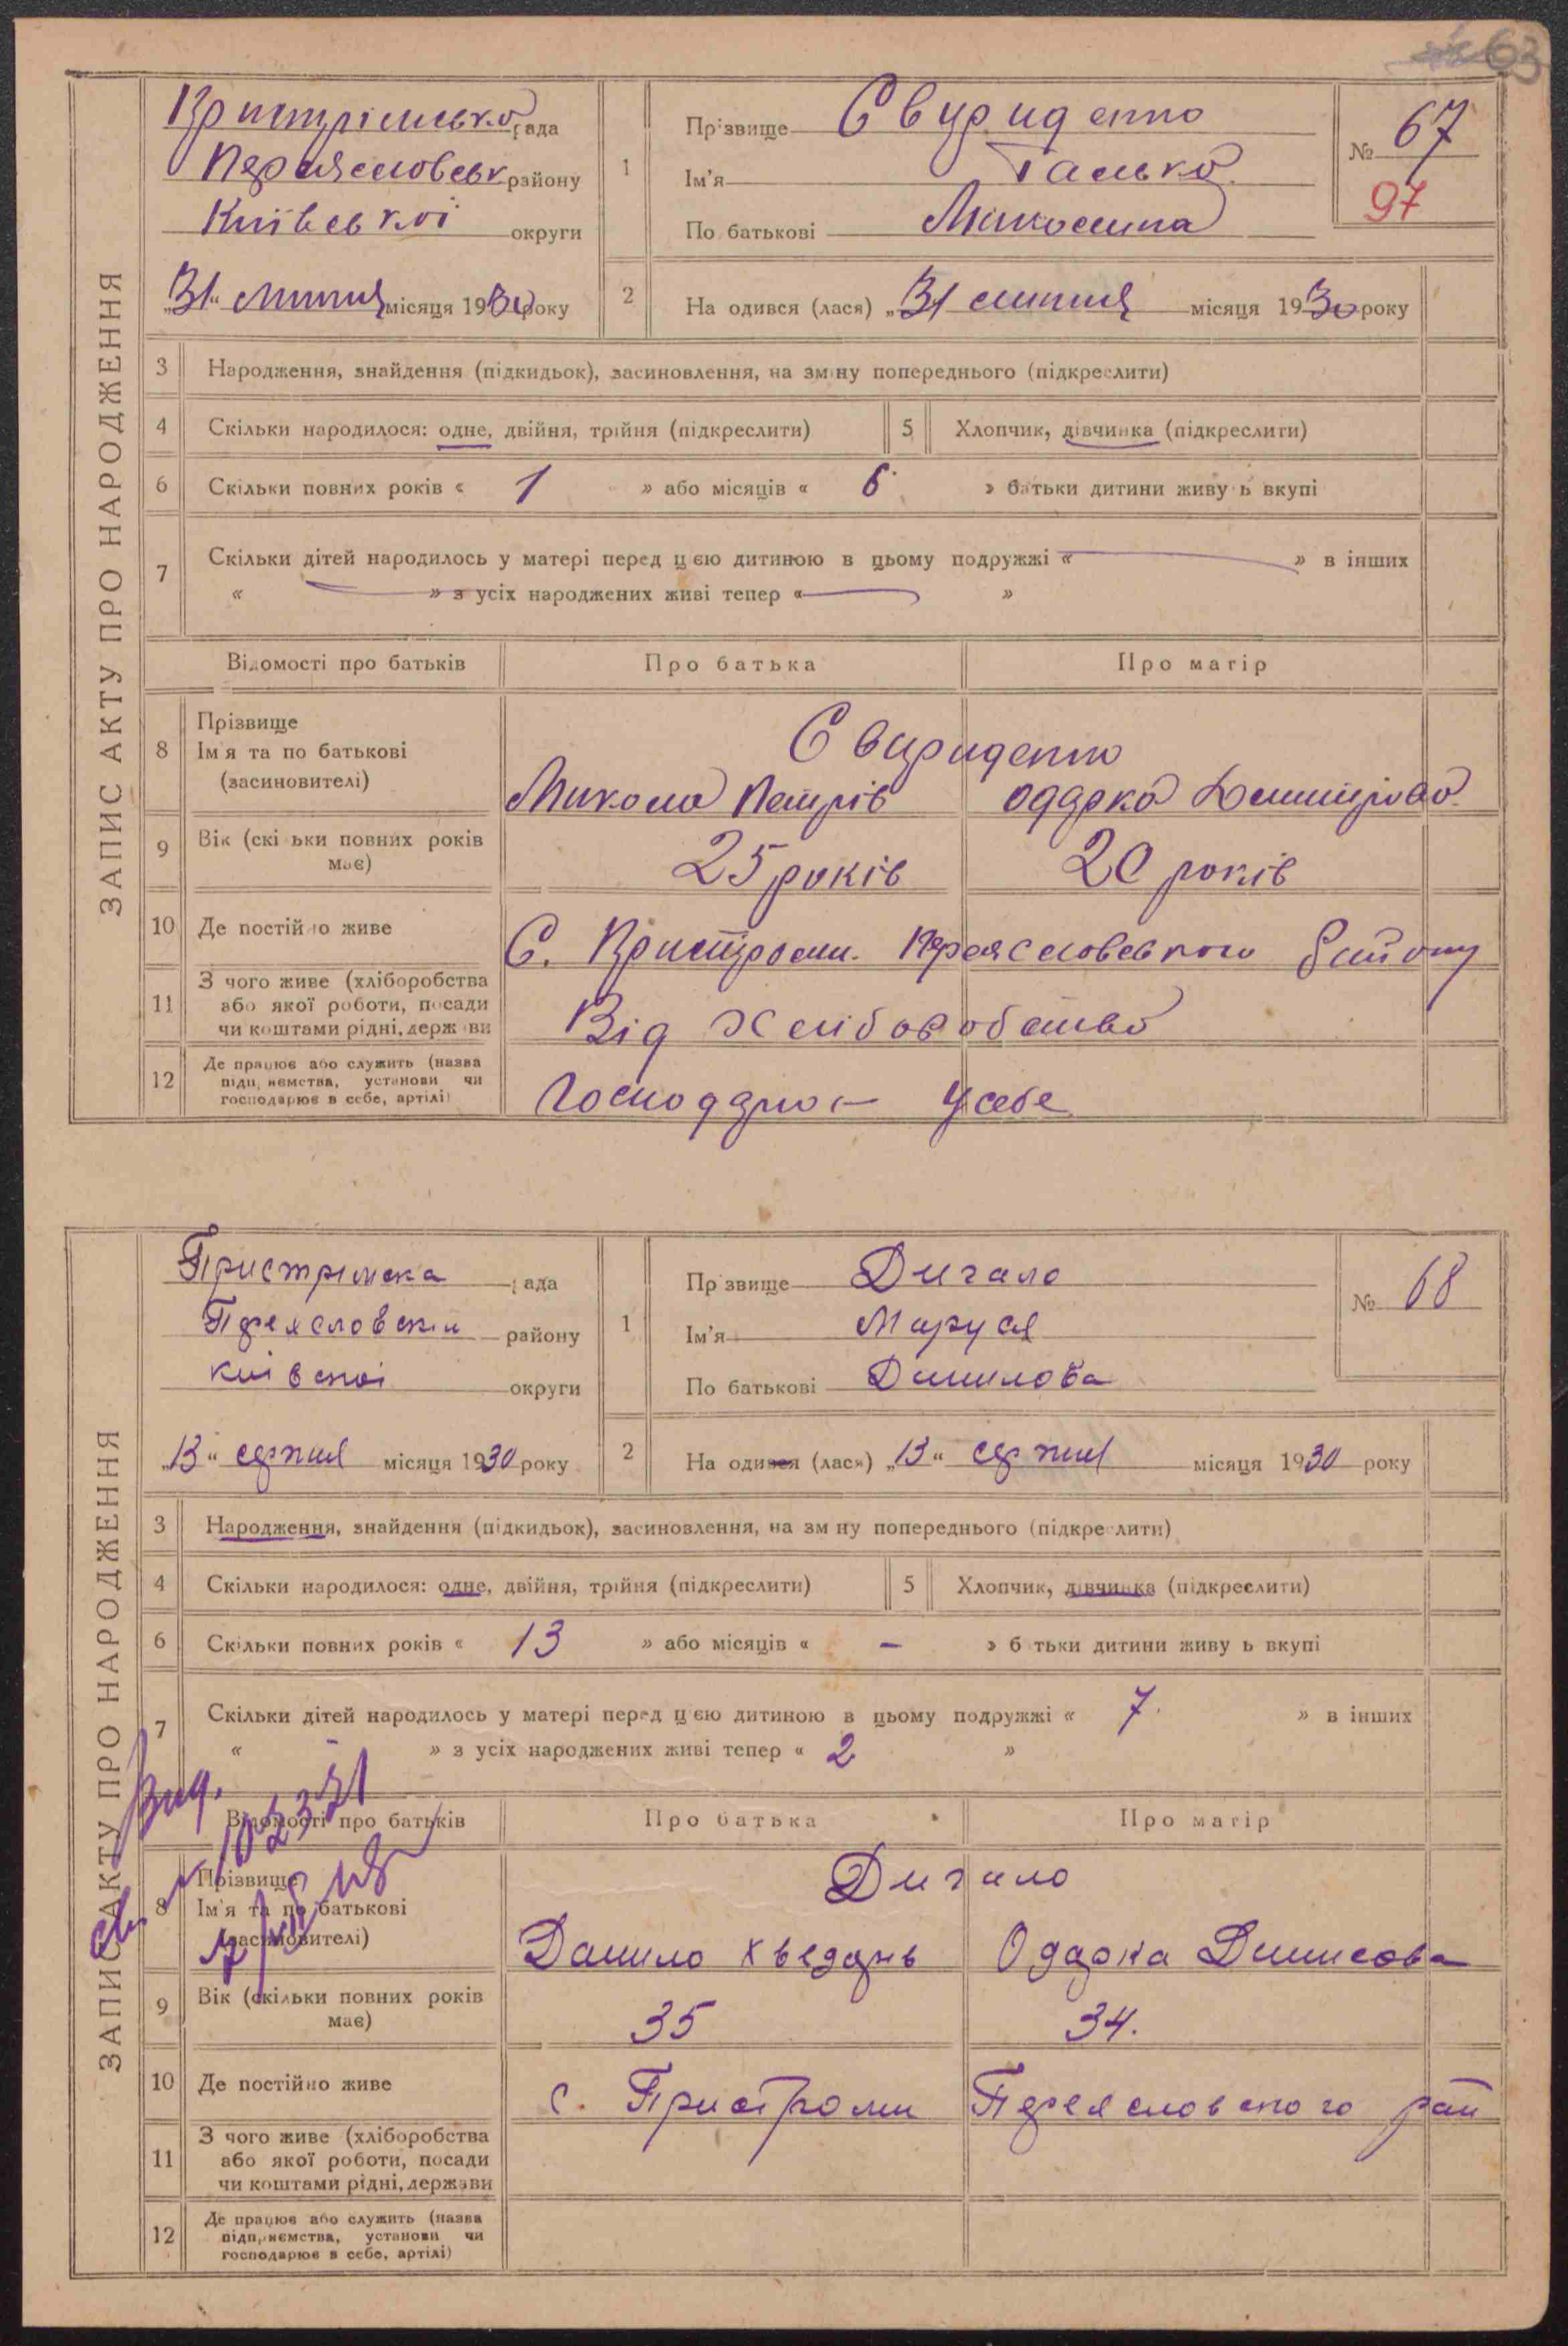 63
ЗАПИС АКТУ ПРО НАРОДЖЕННЯ
Пристрімська рада
Переясловськ району
Київської округи
„31“ липня місяця 1930 року
1 Прізвище Свириденко
Ім'я Галька
По батькові Миколина
№ 67
97
2 На одився (лася) „31 липня місяця 1930 року
3 Народження, знайдення (підкидьок), засиновлення, на зміну попереднього (підкреслити)
4 Скільки народилося: одне, двійня, трійня (підкреслити)
5 Хлопчик, дівчинка (підкреслити)
6 Скільки повних років « 1 » або місяців « 6 » батьки дитини живу ь вкупі
7 Скільки дітей народилось у матері перед цією дитиною в цьому подружжі « — » в інших
« — » з усіх народжених живі тепер « — »
Відомості про батьків Про батька Про матір
8 Прізвище
Ім'я та по батькові
(засиновителі)
Свириденко
Микола Петрів Одарка Дмитрова
9 Вік (скі ьки повних років має) 25 років 20 років
10 Де постійно живе С. Пристроми Переясловського району
11 З чого живе (хліборобства
або якої роботи, посади
чи коштами рідні, держави
Від Хліборобства
12 Де працює або служить (назва
підприємства, установи чи
господарює в себе, артілі)
Господарює у себе
ЗАПИС АКТУ ПРО НАРОДЖЕННЯ
Пристрімска рада
Переясловскій району
київскої округи
„13“ серпня місяця 1930 року
1 Прізвище Дигало
Ім'я Маруся
По батькові Данилова
№ 68
2 На одився (лася) „13“ серпня місяця 1930 року
3 Народження, знайдення (підкидьок), засиновлення, на зміну попереднього (підкреслити)
4 Скільки народилося: одне, двійня, трійня (підкреслити)
5 Хлопчик, дівчинка (підкреслити)
6 Скільки повних років « 13 » або місяців « — » батьки дитини живу ь вкупі
7 Скільки дітей народилось у матері перед цією дитиною в цьому подружжі « 7. » в інших
« » з усіх народжених живі тепер « 2 »
Вид.
Відомості про батьків Про батька Про матір
8 Прізвище
Ім'я та по батькові
(засиновителі)
Дигало
Данило Хведорів Одарка Денисова
9 Вік (скільки повних років має) 35 34.
10 Де постійно живе с. Пристроми Переясловского рай
11 З чого живе (хліборобства
або якої роботи, посади
чи коштами рідні, держави
12 Де працює або служить (назва
підприємства, установи чи
господарює в себе, артілі)